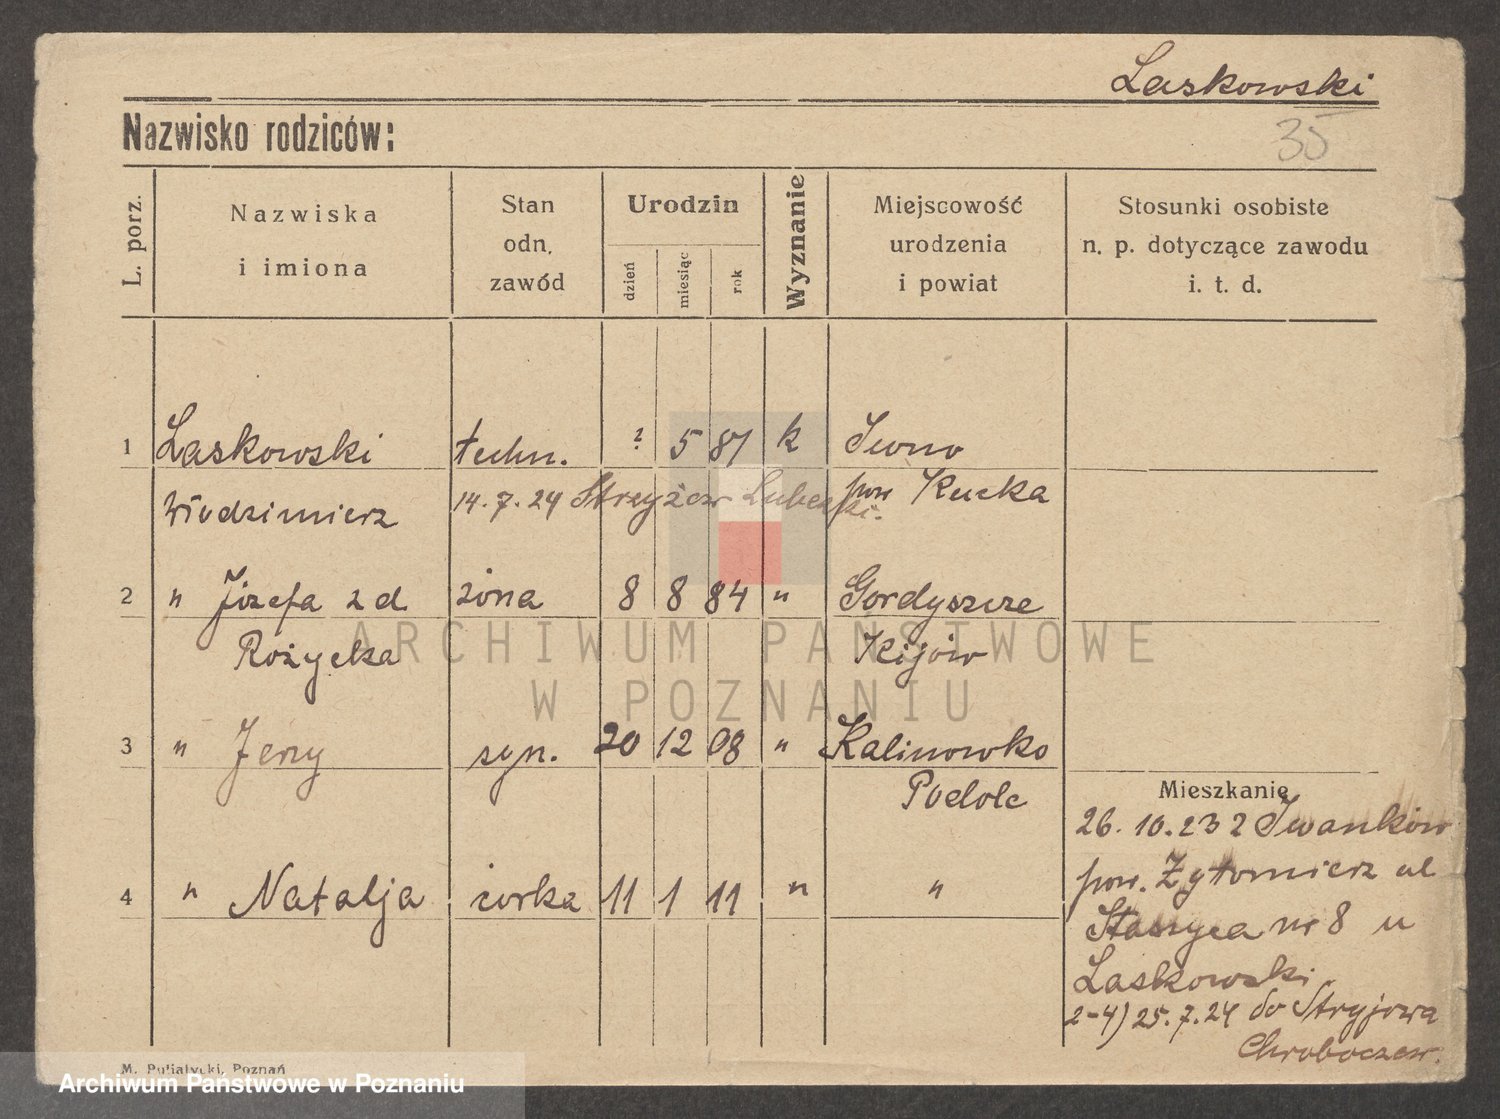 Laskowski
35
Nazwisko rodziców:
L. porz.
Nazwiska
i imiona
Stan
odn.
zawód
Urodzin
dzień
miesiąc
rok
Wyznanie
Miejscowość
urodzenia
i powiat
Stosunki osobiste
n. p. dotyczące zawodu
i. t. d.
1 Laskowski techn. ? 5 87 k Iwno
Włodzimierz 14.7.24 Strzyżew Lubelski. pow
2 " Józefa z d. żona 8 8 84 " Gordyszcze
Różycka Kijów
3 " Jerzy syn. 20 12 08 " Kalinowko
Podole
4 " Natalja córka 11 1 11 " "
Mieszkanie
26.10.23 z Iwanków
pow. Żytomierz ul
Staszyca nr 8 u
Laskowski
2-4) 25.7.24 do Stryjowa
M. Putiatycki, Poznań
ARCHIWUM PAŃSTWOWE
W POZNANIU
Archiwum Państwowe w Poznaniu